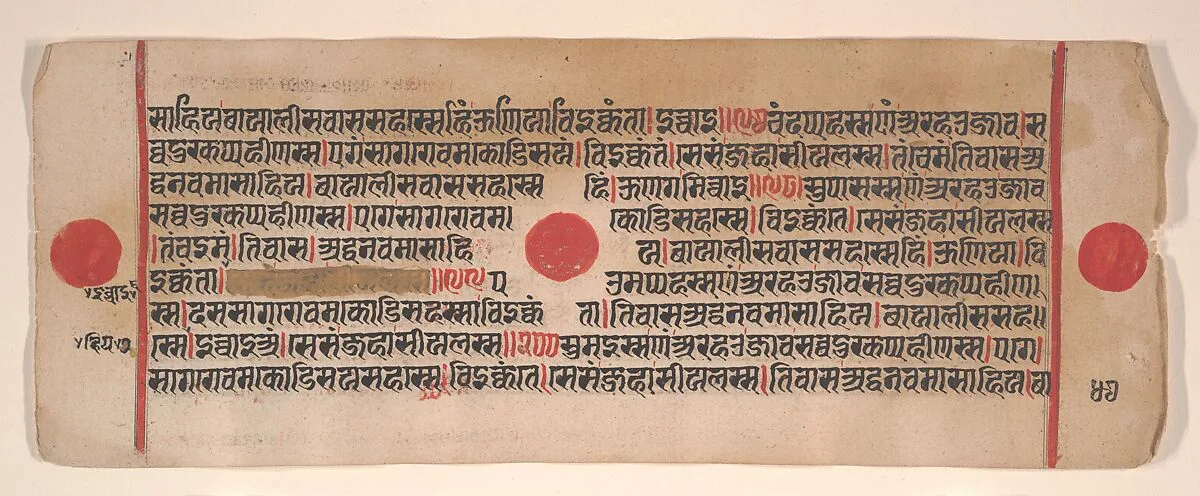 साहियबायालीसवाससहस्सेहिं ऊणिया विइक्कंता। इच्चाइ॥१९७ चंदप्पहस्स णं अरहओ जाव। स
व्वदुक्खप्पहीणस्स। एगं सागरोवमकोडिसयं। विइक्कंतं। सेसं जहा सीयलस्स। तं च मं तिवासअ
द्धनवमासाहिय। बायालीसवाससहस्से हिं। ऊणगमिच्चाइ॥१९८ सुपासस्स णं अरहओ जाव
सव्वदुक्खप्पहीणस्स। एगे सागरोवम।कोडिसहस्से। विइक्कंते। सेसं जहा सीयलस्स
।तं च इमं। तिवास। अद्धनवमासाहि य। बायालीसवाससहस्सेहिं। ऊणिया। वि
इक्कंता। ॥१९९ प उमप्पहस्स णं अरहओ जाव सव्वदुक्खप्पहीण।
स्स। दससागरोवमकोडिसहस्सा विइक्कं ता। तिवासअद्धनवमासाहिय। बायालीससह॥
स्से। इच्चाइअं। सेसं जहा सीयलस्स॥२०० सुमइस्स णं अरहओ जाव सव्वदुक्खप्पहीणस्स। एगे।
सागरोवमकोडिसयसहस्से। विइक्कंते। सेसं जहा सीयलस्स। तिवासअद्धनवमासाहिय। बा